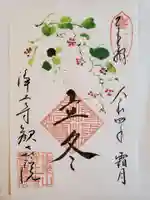 奉拝
令和四年 霜月
立冬
浄土寺観音院